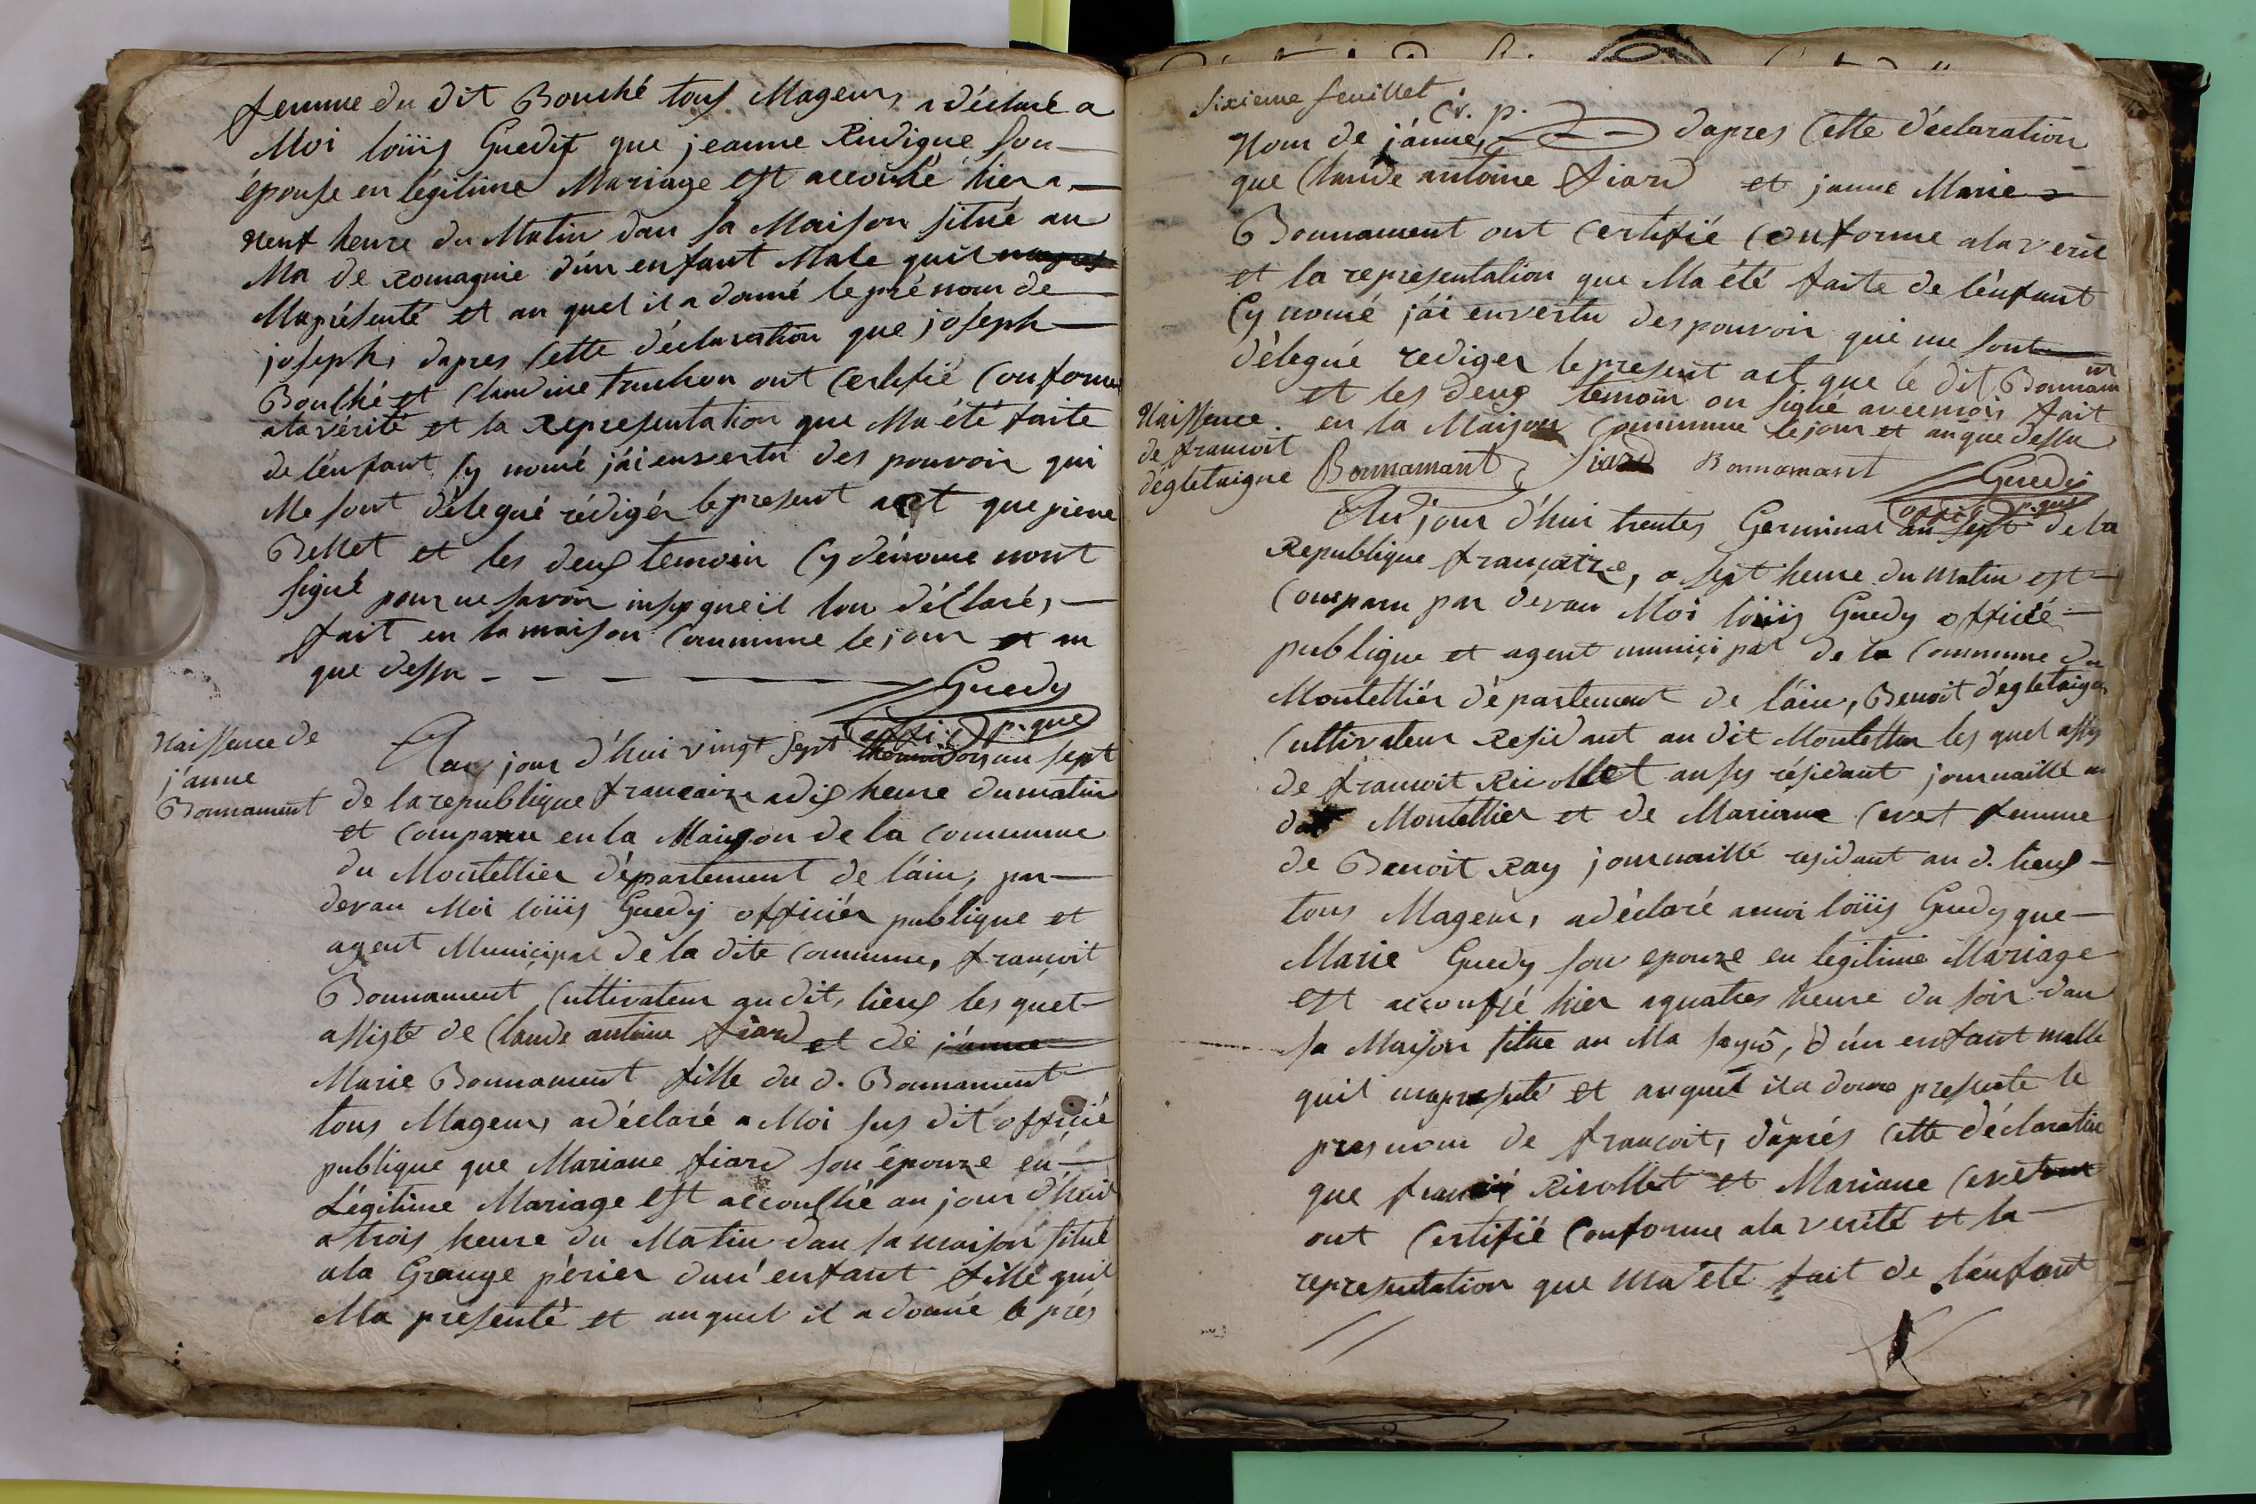 femme du dit Bouché tous Mageur, a déclaré a
Moi loüis Guedy que jeanne Rudigue son
épouse en légitime Mariage est accouhé hier a
neuf heure du Matin dan sa Maison situé au
Ma de Romagnie d'un enfant Male quil
Maprésenté et au quel il a donné le pré nom de
joseph, dapres Cette déclaration que joseph
Bouché et Claudine truchon ont Certifié Conforme
ala vérité et la Representation que Ma été faite
de lénfant Cy nomé jái en vertu des pouvoir qui
Me sont délegué rédigér le present act que pierre
Bellet et les deux temoin Cy dénomé nont
signé pour ne savoir insy que il lon déclaré,
fait en la maison Commune le jour et an
que dessu
Guedy
offi. p.que
Naissence de
jánne
Bonnament
Au jour d'hui vingt sept an sept
de la republique francaize a dix heure du matin
et comparu en la Maison de la commune
du Montellier département de láin, par
devan Moi loüis Guedy officiér publique et
agent Municipal de la dite Commune, francoit
Bonnament, Cultivateur au dit, lieux les quel
assisté de Claude antoine fiard et de jánne
Marie Bonnament fille du d. Bonnament
tous Mageur, a déclaré a Moi sus dit officié
publique que Mariane fiard son épouze en
Légitime Mariage est accouhé au jour d'huit
a trois heure du Matin dan sa maison situé
ala Grange périer dun enfant fille quil
Ma présenté et auquel il a donné le prés
Sixieme feuillet
Nom de jánne, dapres Cette déclaration
que Claude antoine fiard et janne Marie
Bonnament ont Certifié Conforme ala verité
et la representation que Ma été faite de lénfant
Cy nomé jái en vertu des pouvoir qui me sont
délegué rediger le present act que le dit Bonnament
et les deux temoin on signé avec moi fait
en la Maison Commune le jour et an que dessu
Bonnamant fiard Bonnamant Guedy
offi. p.que
Naissence
de francoit
dégletaigne
Au jour d'hui trentes Germinal an sept de la
Republique francaize, a sept heure du matin est
Comparu par devan Moi loüis Guedy officié
publique et agent municipal de la Commune du
Montelliér département de láin, Benoit dégletaigne
Cultivateur Residant au dit Montellier les quel assis
de francoit Ricollet aussy résidant journaillé au
dit Montellier et de Mariane Cevet femme
de Benoit Ray journaillé residant au d. lieux
tous Mageur, a déclaré a moi loüis Guedy que
Marie Guedy son epouze en legitime Mariage
est accouhé hier a quatres heure du soir dan
sa Maison situe au Ma, d'un enfant malle
quil mapresenté et auquel il a donne presente le
pres nom de francoit, dáprés Cette déclaration
que Ricollet et Mariane Cevet
ont Certifié Conforme ala verité et la
representation que Ma été fait de lénfant